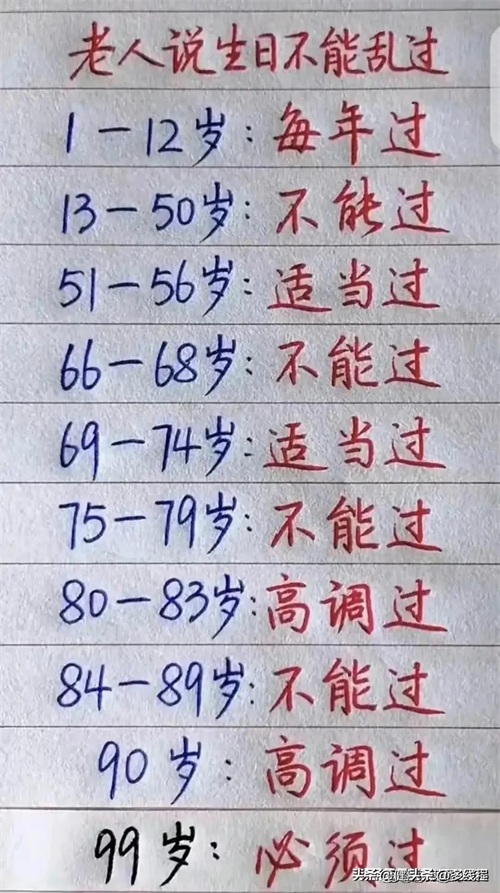 老人说生日不能乱过
1—12岁：每年过
13—50岁：不能过
51—56岁：适当过
66—68岁：不能过
69—74岁：适当过
75—79岁：不能过
80—83岁：高调过
84—89岁：不能过
90岁：高调过
99岁：必须过